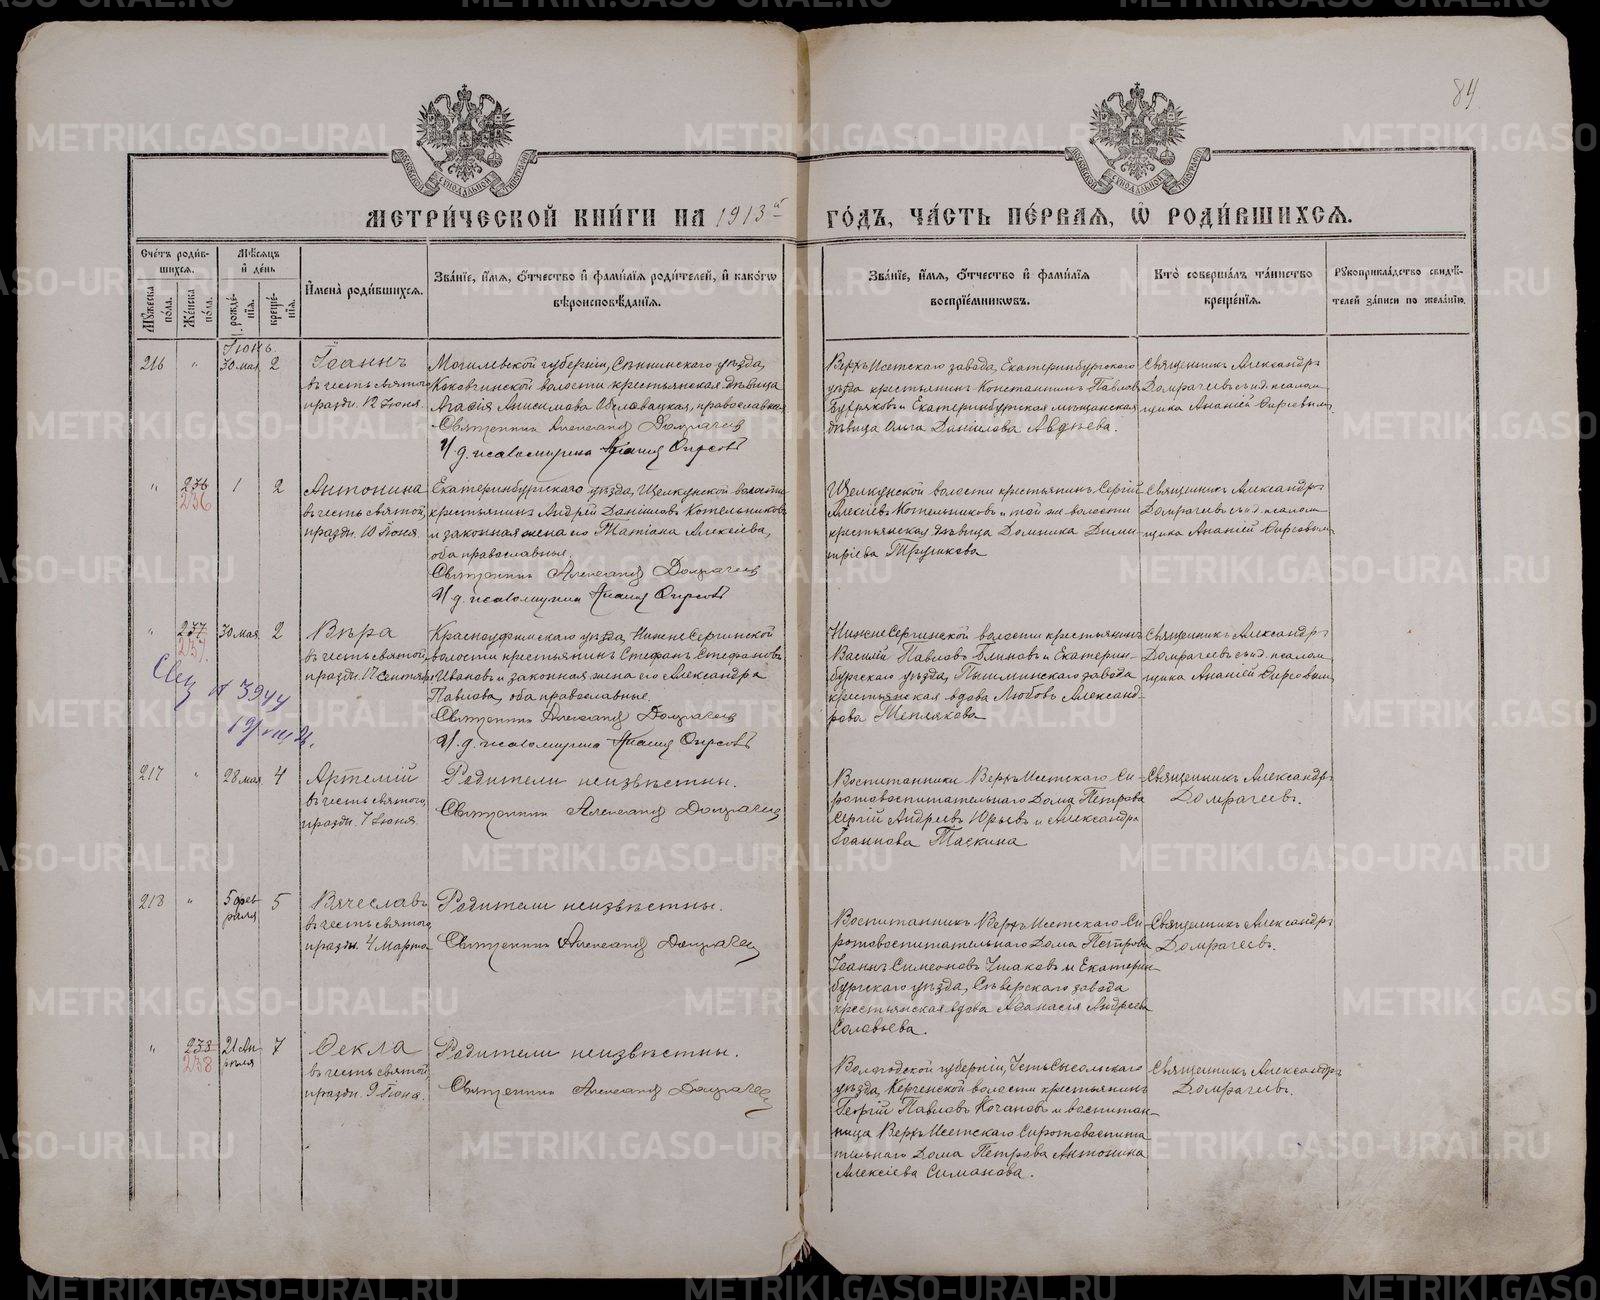 84
МОСКОВСКОЙ СѴНОДАЛЬНОЙ ТИПОГРАФІИ
МОСКОВСКОЙ СѴНОДАЛЬНОЙ ТИПОГРАФІИ
МЕТРИ́ЧЕСКОЙ КНИ́ГИ НА 1913й ГО́ДЪ, ЧА́СТЬ ПЕ́РВАЯ, Ѡ҆ РОДИ́ВШИХСЯ.
Сче́тъ роди́в-
шихся.
Мꙋ́жеска по́ла.
Же́нска по́ла.
Мѣ́сяцъ
и҆ де́нь
рожде́нія.
креще́нія.
И҆мена̀ роди́вшихся.
Зва́ніе, и҆́мя, ѻ҆́тчество и҆ фами́лїя роди́телей, и҆ како́гѡ
вѣроисповѣ́данїя.
Зва́ніе, и҆́мя, ѻ҆́тчество и҆ фами́лїя
воспрїе́мникѡвъ.
Кто̀ соверша́лъ та́инство
креще́нїя.
Рꙋкоприкла́дство свидѣ́-
телей за́писи по жела́нїю.
Іюнь.
216 " 30 мая 2
Іоаннъ
въ честь святого,
праздн. 12 Іюня.
Могилевской губерніи, Сѣннинскаго уѣзда,
волости крестьянская дѣвица
Агаѳія Анисимова православная
Священникъ Александръ Домрачевъ
И. д. псаломщика Ананій Ѳирсовъ
Верхъ Исетскаго завода, Екатеринбургскаго
уѣзда крестьянинъ Константинъ Павловъ
Бухряковъ и Екатеринбургская мѣщанская
дѣвица Ольга Даніилова Авдѣева.
Священникъ Александръ
Домрачевъ съ и.д. псалом-
щика Ананіей Ѳирсовымъ.
" 236 1 2
236
Антонина
въ честь святой,
праздн. 10 Іюня.
Екатеринбургскаго уѣзда, Щелкунской волости
крестьянинъ Андрей Даніиловъ Котельниковъ
и законная жена его Татіана Алексіева,
оба православные.
Священникъ Александръ Домрачевъ
И. д. псаломщика Ананій Ѳирсовъ
Щелкунской волости крестьянинъ Сергій
Алексіевъ Котельниковъ и той же волости
крестьянская дѣвица Домника Дими-
тріева Трушкова
Священникъ Александръ
Домрачевъ съ и.д. псалом-
щика Ананіей Ѳирсовымъ
" 237 30 мая 2
237.
Вѣра
въ честь святой,
праздн. 17 Сентября
Красноуфимскаго уѣзда, НижнеСергинской
волости крестьянинъ Стефанъ Стефановъ
Ивановъ и законная жена его Александра
Павлова, оба православные.
Священникъ Александръ Домрачевъ
И. д. псаломщика Ананій Ѳирсовъ
НижнеСергинской волости крестьянинъ
Василій Павловъ Блиновъ и Екатерин-
бургскаго уѣзда, Пышминскаго завода
крестьянская вдова Любовь Александ-
рова Теплякова
Священникъ Александръ
Домрачевъ съ и.д. псалом-
щика Ананіей Ѳирсовымъ
217 " 28 мая 4
Артемій
въ честь святого,
праздн. 7 Іюня.
Родители неизвѣстны.
Священникъ Александръ Домрачевъ
Воспитанники Верхъ Исетскаго Си-
ротовоспитательнаго Дома Петрова
Сергій Андреевъ Юрьевъ и Александра
Іоаннова Таскина
Священникъ Александръ
Домрачевъ.
218 " 5 фев-
раля 5
Вячеславъ
въ честь святого
праздн. 4 Марта
Родители неизвѣстны.
Священникъ Александръ Домрачевъ
Воспитанникъ Верхъ Исетскаго Си-
ротовоспитательнаго Дома Петрова
Іоаннъ Симеоновъ Ушаковъ и Екатерин-
бургскаго уѣзда, Сѣверскаго завода
крестьянская вдова Аѳанасія Андреева
Соловьева.
Священникъ Александръ
Домрачевъ.
" 238 21 Ап-
реля 7
238
Ѳекла
въ честь святой,
праздн. 9 Іюня.
Родители неизвѣстны.
Священникъ Александръ Домрачевъ
Вологодской губерніи, Усть Сысольскаго
уѣзда, Керченской волости крестьянинъ
Георгій Павловъ Кочановъ и воспитан-
ница Верхъ Исетскаго Сиротовоспита-
тельнаго Дома Петрова Антонина
Алексіева Симанова.
Священникъ Александръ
Домрачевъ.
METRIKI.GASO-URAL.RU